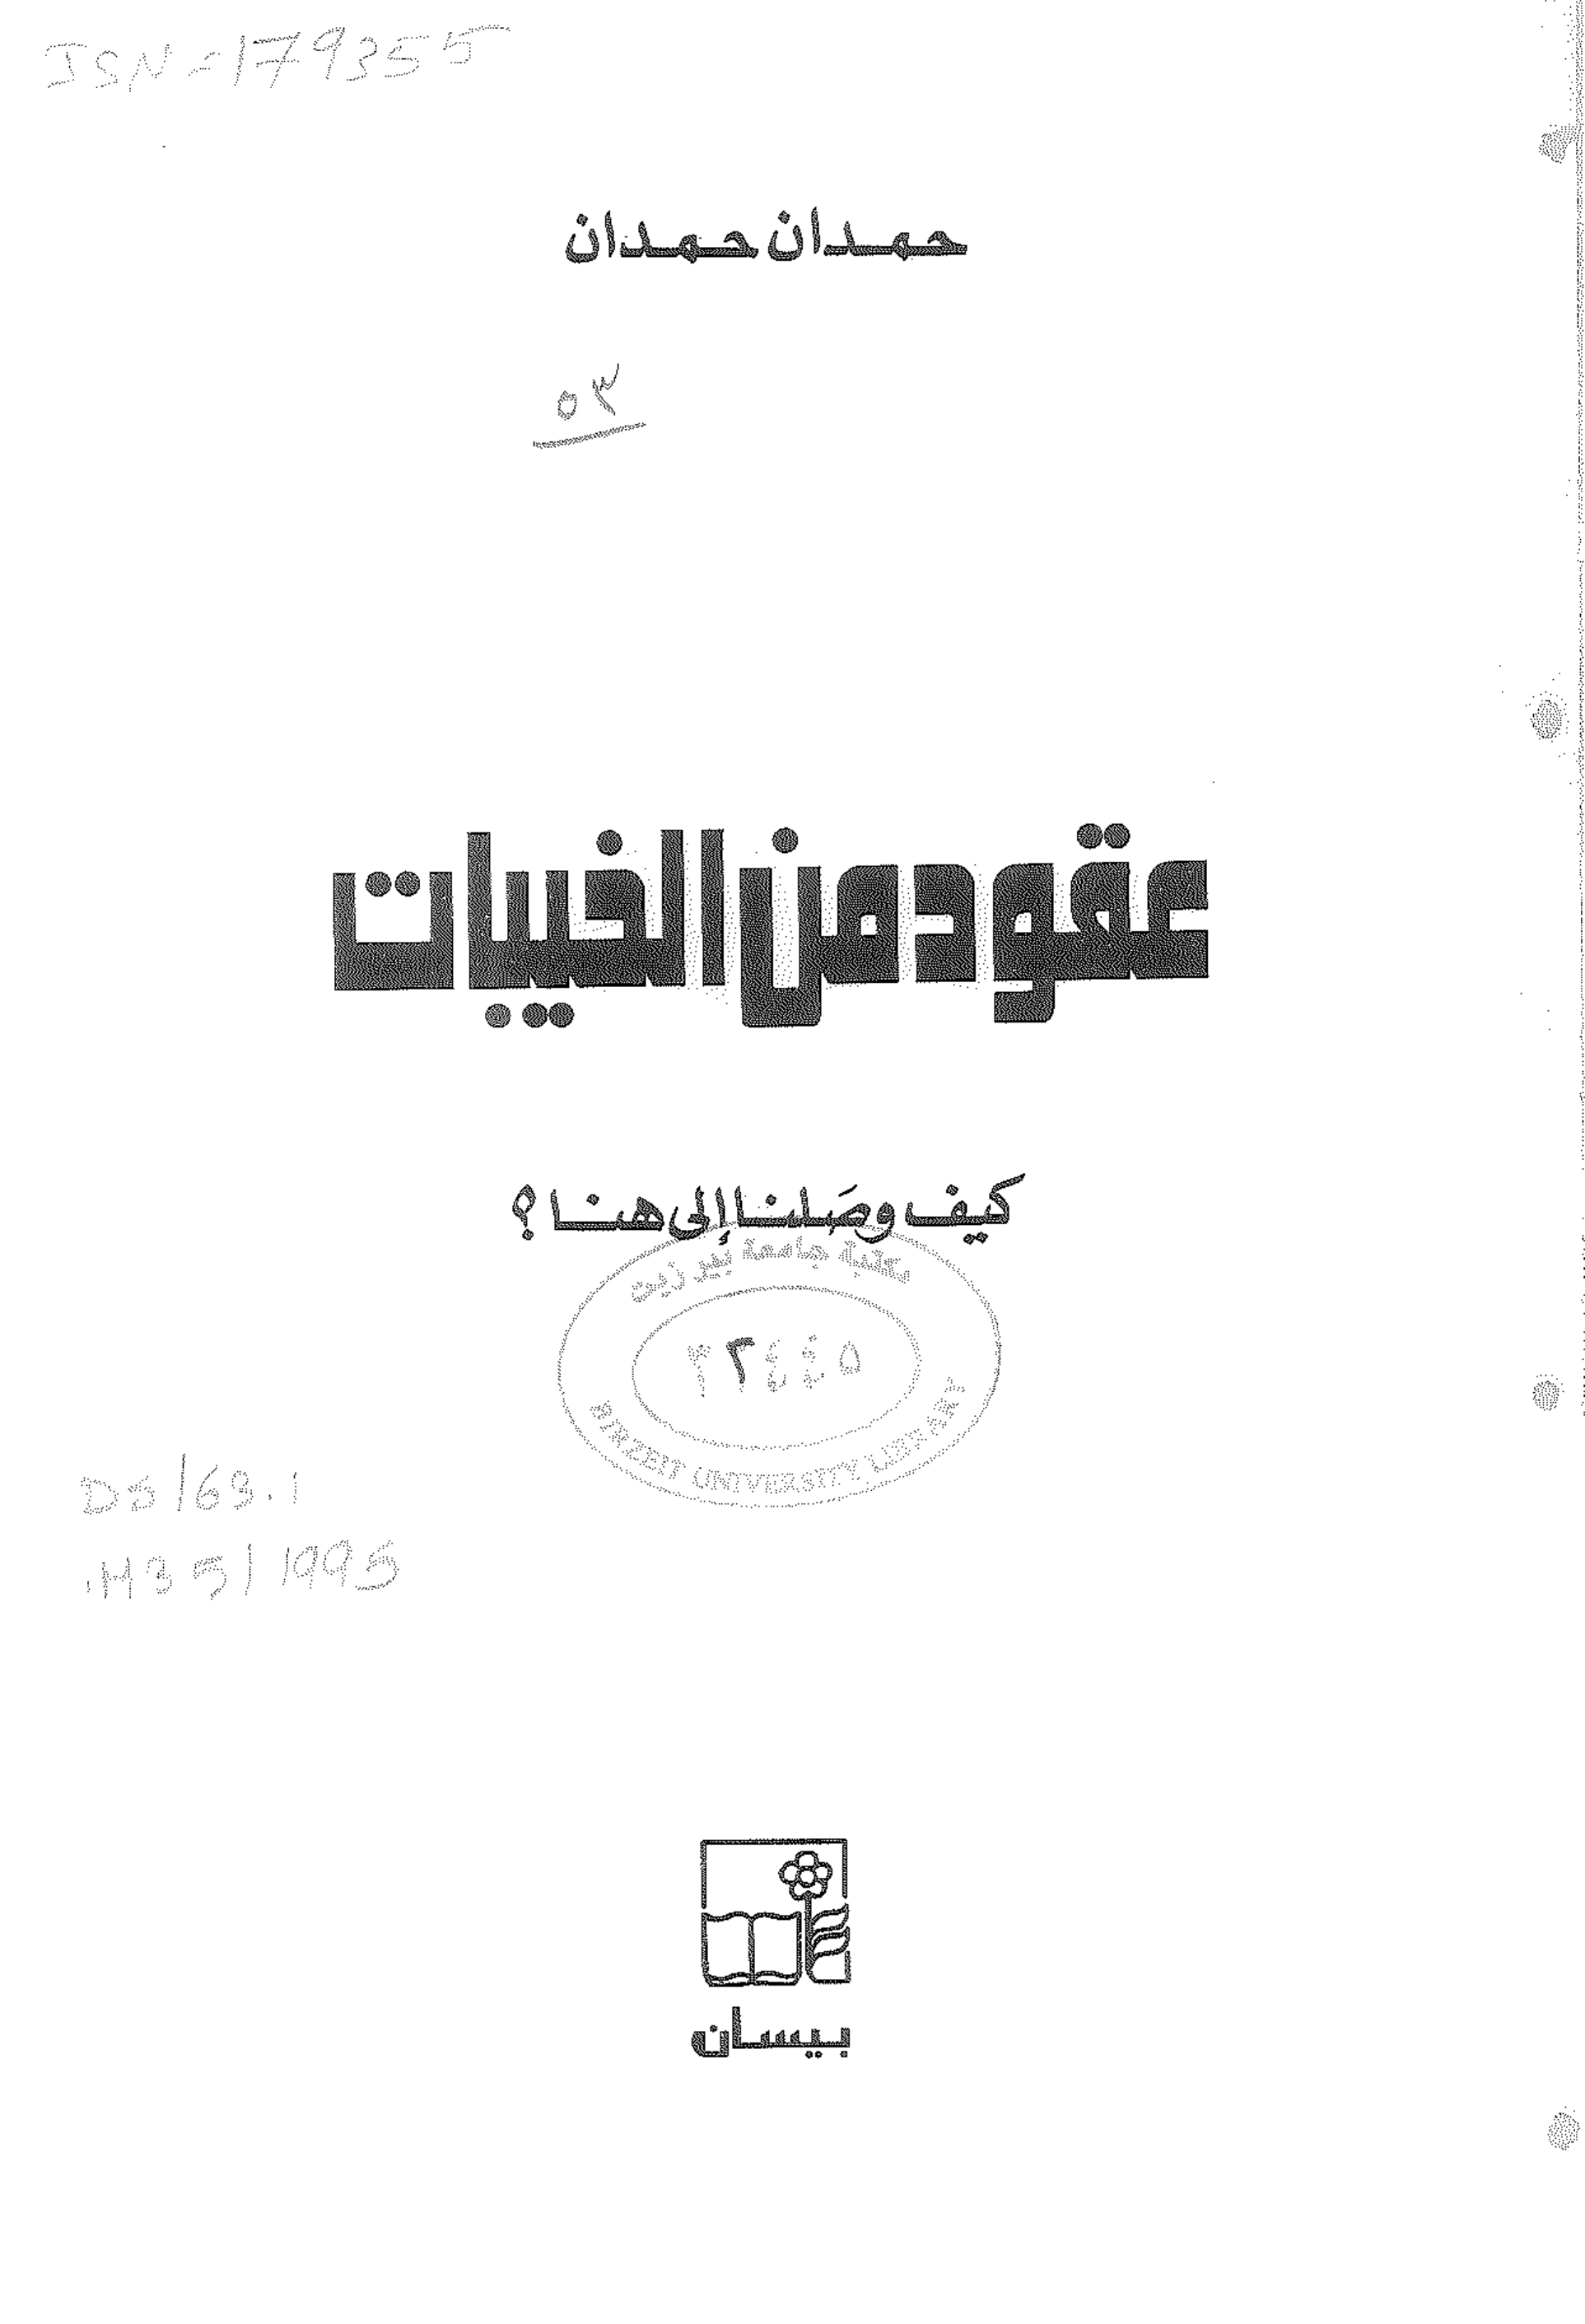 ISN = 179355
حمدان حمدان
٥٣
عقود من الخيبات
كيف وصَلنا إلى هنا ؟
مكتبة جامعة بير زيت
٣٢٤٤٥
BIRZEIT UNIVERSITY LIBRARY
DS/63.1
.H35/1995
بيسان